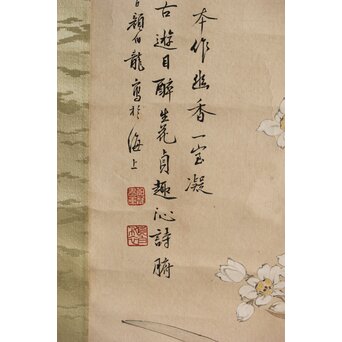 本作幽香一室凝
古遊目醉生花貞趣沁詩脾
顏伯龍寫於海上